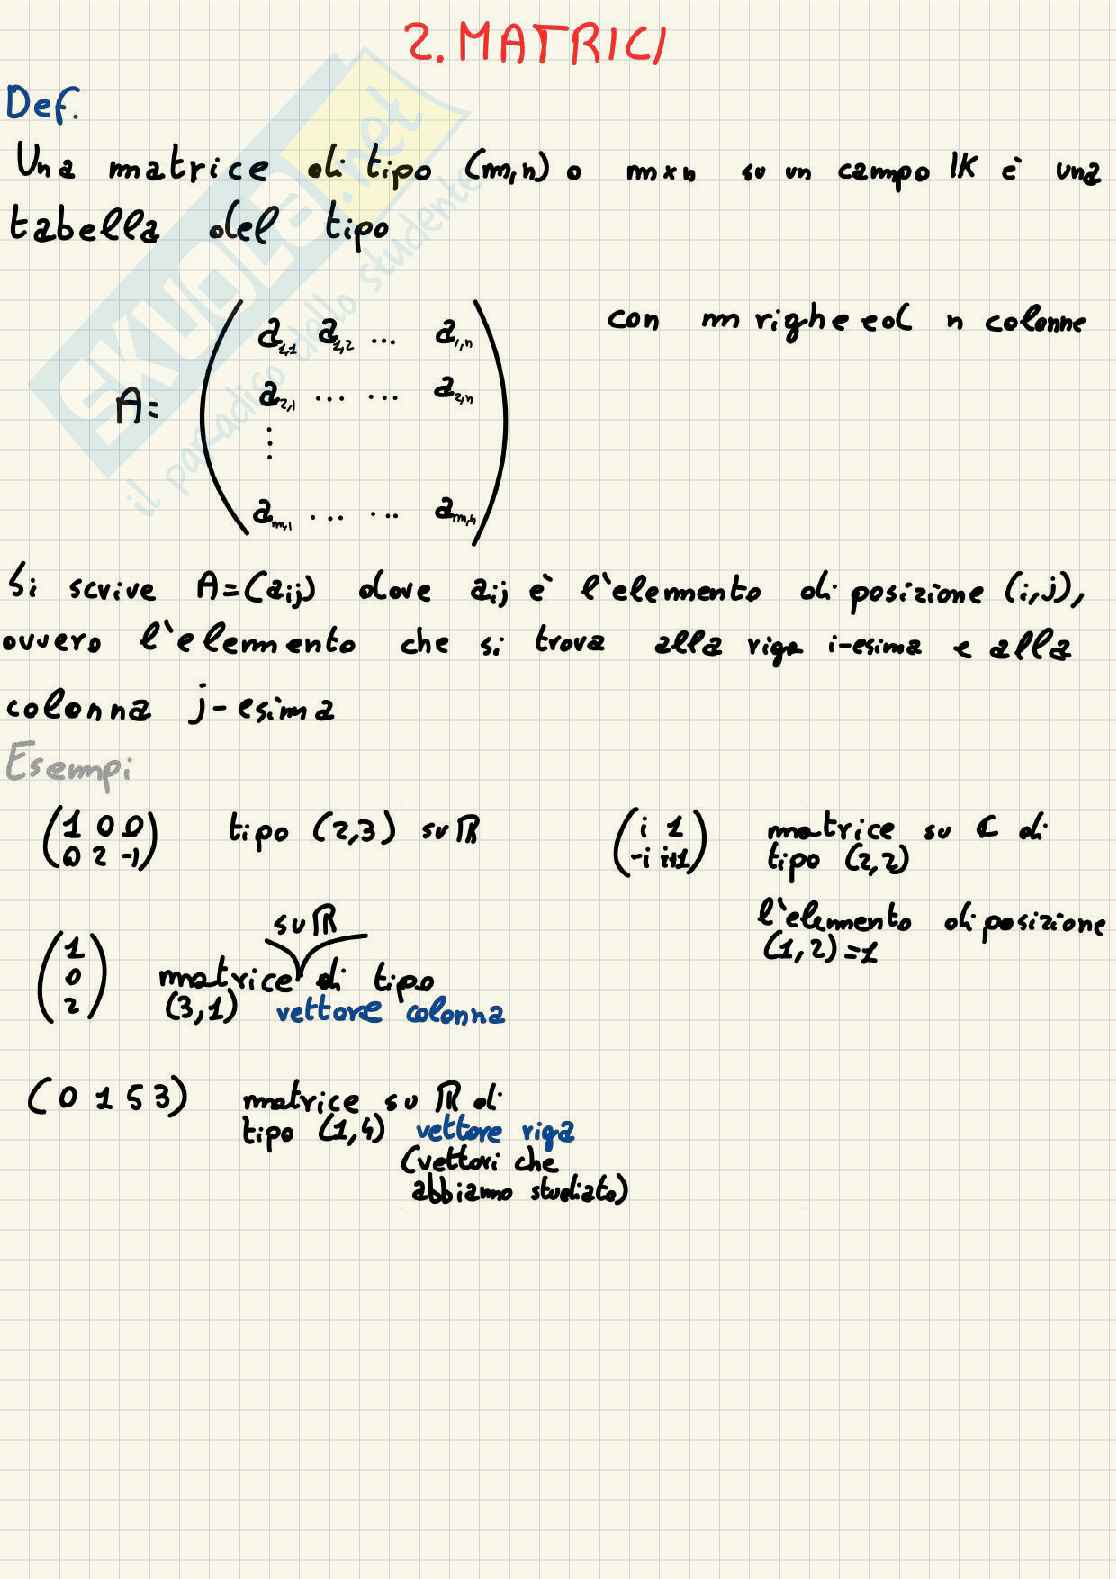 2. MATRICI
Def.
Una matrice di tipo (m,n) o m×n su un campo IK è una
tabella del tipo
A= ( a1,1 a1,2 ... a1,n
a2,1 ... ... a2,n
⋮
am,1 ... ... am,n )
con m righe ed n colonne
Si scrive A=(aij) dove aij è l'elemento di posizione (i,j),
ovvero l'elemento che si trova alla riga i-esima e alla
colonna j-esima
Esempi
(1 0 0
0 2 -1) tipo (2,3) su ℝ
(i 1
-i i+1) matrice su ℂ di
tipo (2,2)
l'elemento di posizione
(1,2)=1
(1
0
2)
su ℝ
matrice di tipo
(3,1) vettore colonna
(0 1 5 3) matrice su ℝ di
tipo (1,4) vettore riga
(vettori che
abbiamo studiato)
SKUOLA.net
il paradiso dello studente